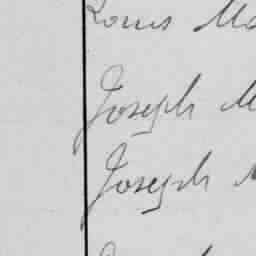 Louis Ma
Joseph M
Joseph